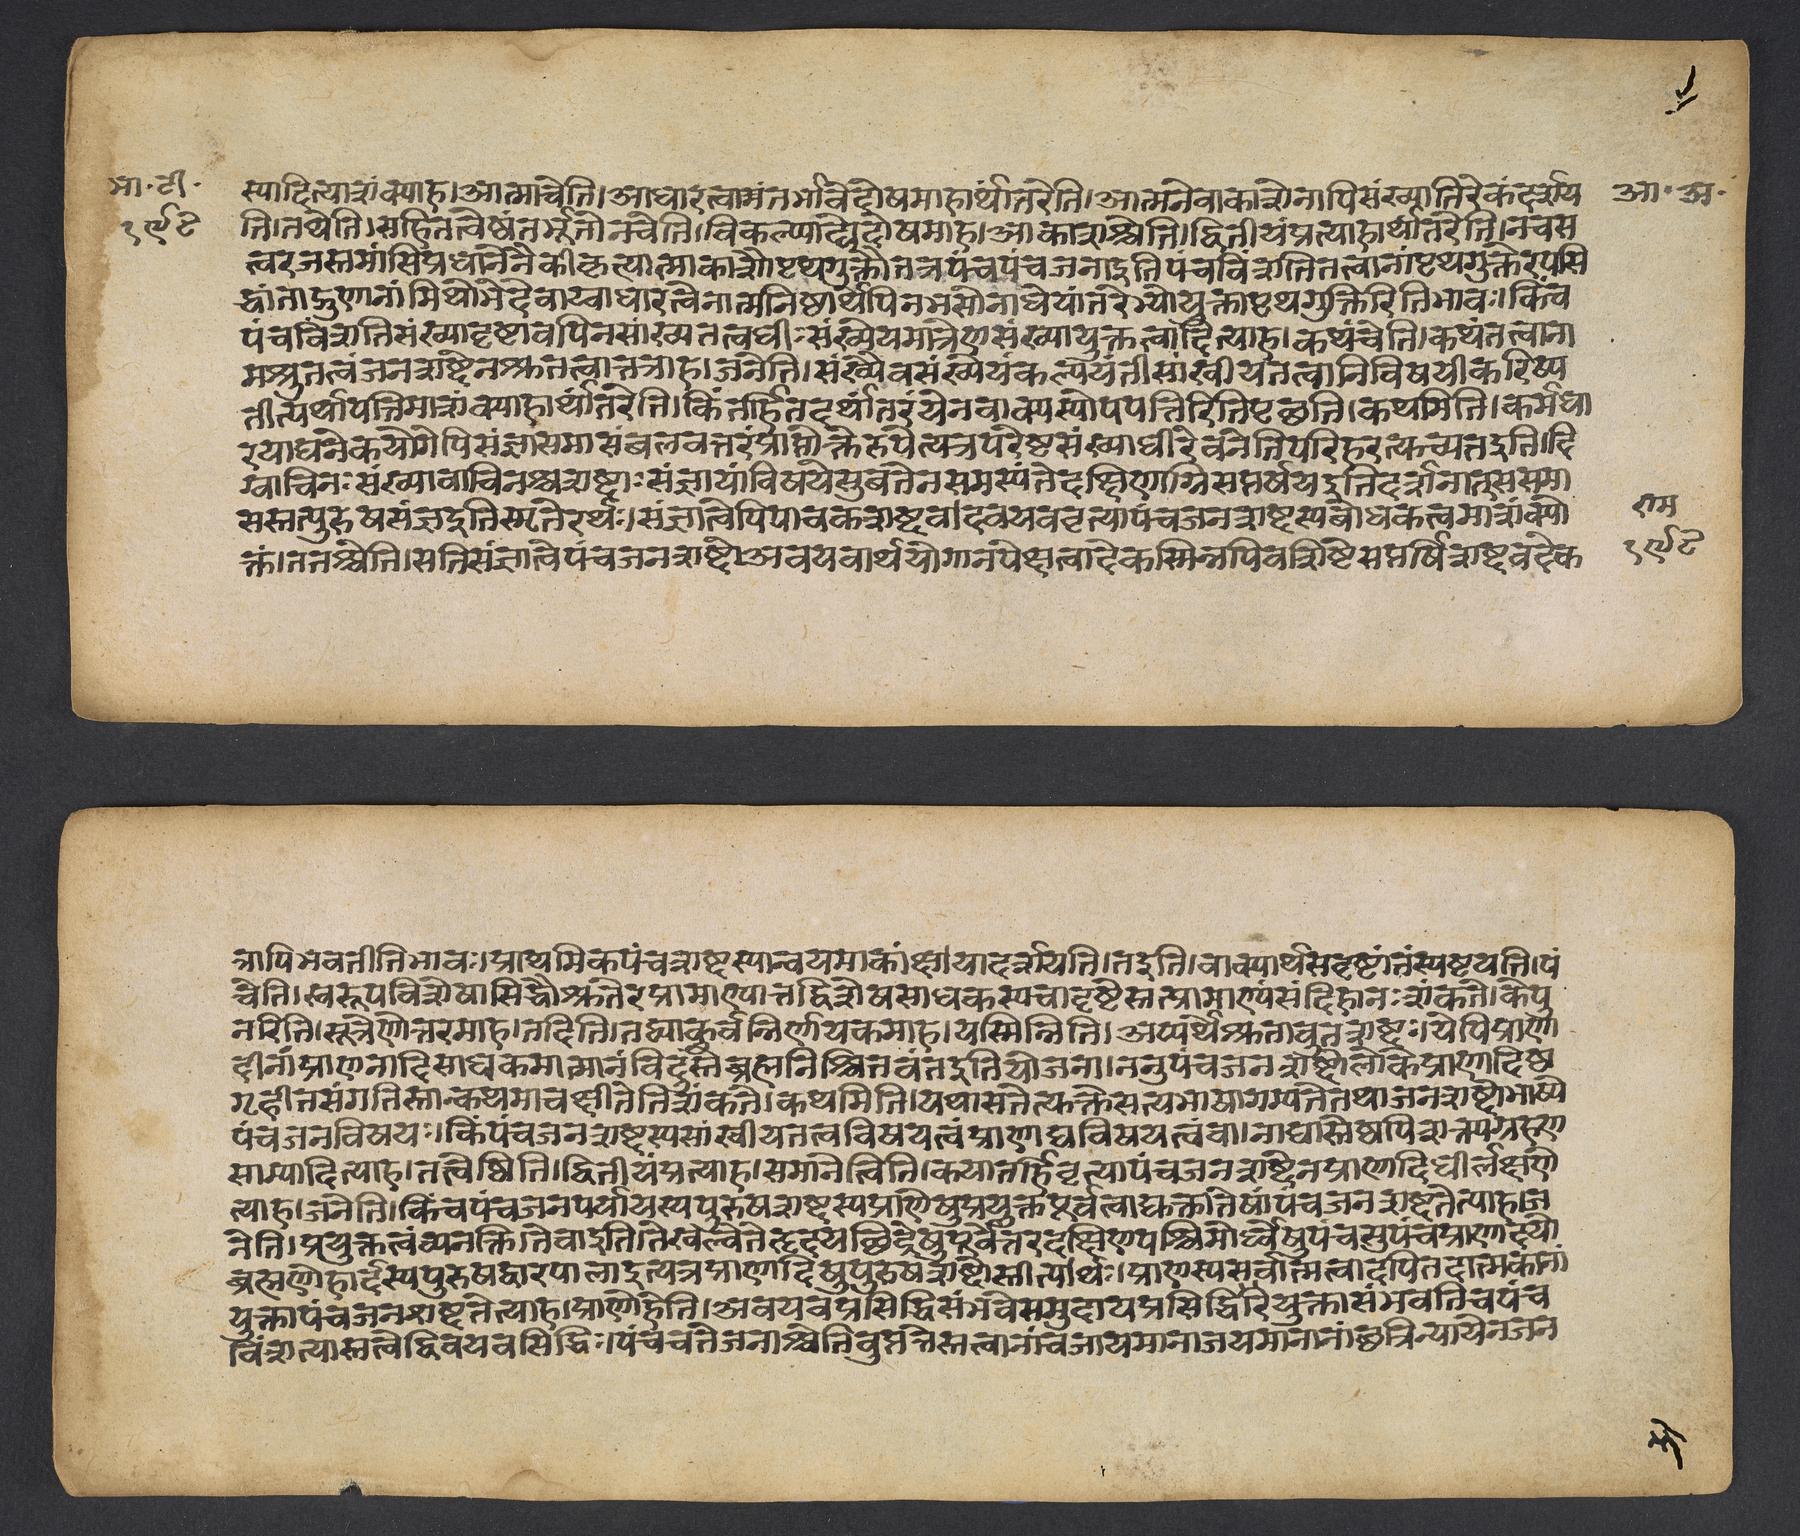 भा॰ टी॰
१९८
स्यादित्याशंक्याह।आत्माचेति।आधारत्वामंतर्भावेदोषमाहार्थांतरेति।आत्मनेवाकाशेनापिसंख्यातिरेकंदर्शय
आ॰ अ॰
ति।तथेति।सहितत्वेष्वंतर्भूतोनवेति।विकल्प्याद्येदोषमाह।आकाशश्चेति।द्वितीयंप्रत्याहार्थांतरेति।नचस
त्वरजस्तमांसिप्रधानेनैकीकृत्यात्माकाशौपृथगुक्तौतत्रपंचपंचजनाइतिपंचविंशतितत्वानांपृथगुक्तेरपसि
द्धांताद्गुणानांमिथोभेदेवाय्वाधारत्वेनात्मनिष्ठार्थेपिनभसोनाधेयांतरेभ्योयुक्तापृथगुक्तिरितिभावः।किंच
पंचविंशतिसंख्यादृष्टावपिनसांख्यतत्वधीःसंख्येयमात्रेणसंख्यायुक्तत्वादित्याह।कथंचेति।कथंतत्वाना
मश्रुतत्वंजनशब्देनश्रुतत्वात्तत्राह।जनेति।संख्यैवसंख्येयंकल्पयंतीसांखीयतत्वानिविषयीकरिष्य
तीत्यर्थापत्तिमाशंक्याहार्थांतरेति।किंतर्हितदर्थांतरंयेनवाक्यस्योपपत्तिरितिपृच्छति।कथमिति।कर्मधा
रयाद्यनेकयोगेपिसंज्ञासमासंबलवत्तरंप्राप्तोक्तेरुपेत्यत्रपरेष्टसंख्याधीरेवनेतिपरिहरत्युच्यतइति।दि
ग्वाचिनःसंख्यावाचिनश्चशब्दाःसंज्ञायांविषयेसुबंतेनसमस्यंतेदक्षिणाग्निसप्तर्षयइतिदर्शनात्तुससमा
सस्तत्पुरुषसंज्ञइतिस्मृतेरर्थः।संज्ञात्वेपिपावकशब्दवदवयववृत्त्यापंचजनशब्दस्यबोधकत्वमाशंक्यो
राम
क्तं।ततश्चेति।सतिसंज्ञात्वेपंचजनशब्दोअवयवार्थयोगानपेक्षत्वादेकस्मिन्नपिवशिष्टेसप्तर्षिशब्दवदेक
१९८
त्रापिभवतीतिभावः।प्राथमिकपंचशब्दस्यान्वयमाकांक्षयादर्शयति।तइति।वाक्यार्थंसदृष्टांतंस्पष्टयति।पं
चेति।स्वरूपविशेषासिद्धौश्रुतेरप्रामाण्यात्तद्विशेषसाधकस्यचादृष्टेस्तत्प्रामाण्यंसंदिहानःशंकते।केपु
नरिति।सूत्रेणोत्तरमाह।तदिति।तद्व्याकुर्वन्निर्णायकमाह।यस्मिन्निति।अप्यर्थेश्रुतावुतशब्दः।येपिप्राणा
दीनांप्राणनादिसाधकमात्मानंविदुस्तेब्रह्मनिश्चितवंतइतियोजना।ननुपंचजनशब्दोलोकेप्राणादिष्व
गृहीतसंगतिस्तान्कथमाचक्षीतेतिशंकते।कथमिति।यथासतेत्युक्तेसत्यभामागम्यतेतथाजनशब्दोभाष्ये
पंचजनविषयः।किंपंचजनशब्दस्यसांखीयतत्वविषयत्वंप्राणाद्यविषयत्वंवा।नाद्यस्तेष्वपिशब्दप्रग्रहण
साम्यादित्याह।तत्वेष्विति।द्वितीयंप्रत्याह।समानेत्विति।कयातर्हिवृत्यापंचजनशब्देनप्राणादिधीर्लक्षणे
त्याह।जनेति।किंचपंचजनपर्यायस्यपुरुषशब्दस्यप्राणेषुप्रयुक्तपूर्वत्वाद्युक्तातेषांपंचजनशब्दतेत्याह।ज
नेति।प्रयुक्तत्वंव्यनक्ति।तेवाइति।तेखल्वेतेहृदयछिद्रेषुपूर्वोत्तरदक्षिणपश्चिमोर्ध्वेषुपंचसुपंचप्राणादयो
ब्रह्मणोहार्दस्यपुरुषद्वारपालाइत्यत्रप्राणादिषुपुरुषशब्दोस्तीत्यर्थः।प्राणस्यसर्वात्मत्वादपितदात्मकानां
युक्तापंचजनशब्दतेत्याह।प्राणोहेति।अवयवप्रसिद्धिसंभवेसमुदायप्रसिद्धिरयुक्तासंभवतिचपंच
विंशत्यास्तत्वेद्विवयवसिद्धिः।पंचचतेजनाश्चेतिव्युत्पत्तेस्तत्वानांचजायमानाजयमानानांछत्रिन्यायेनजन